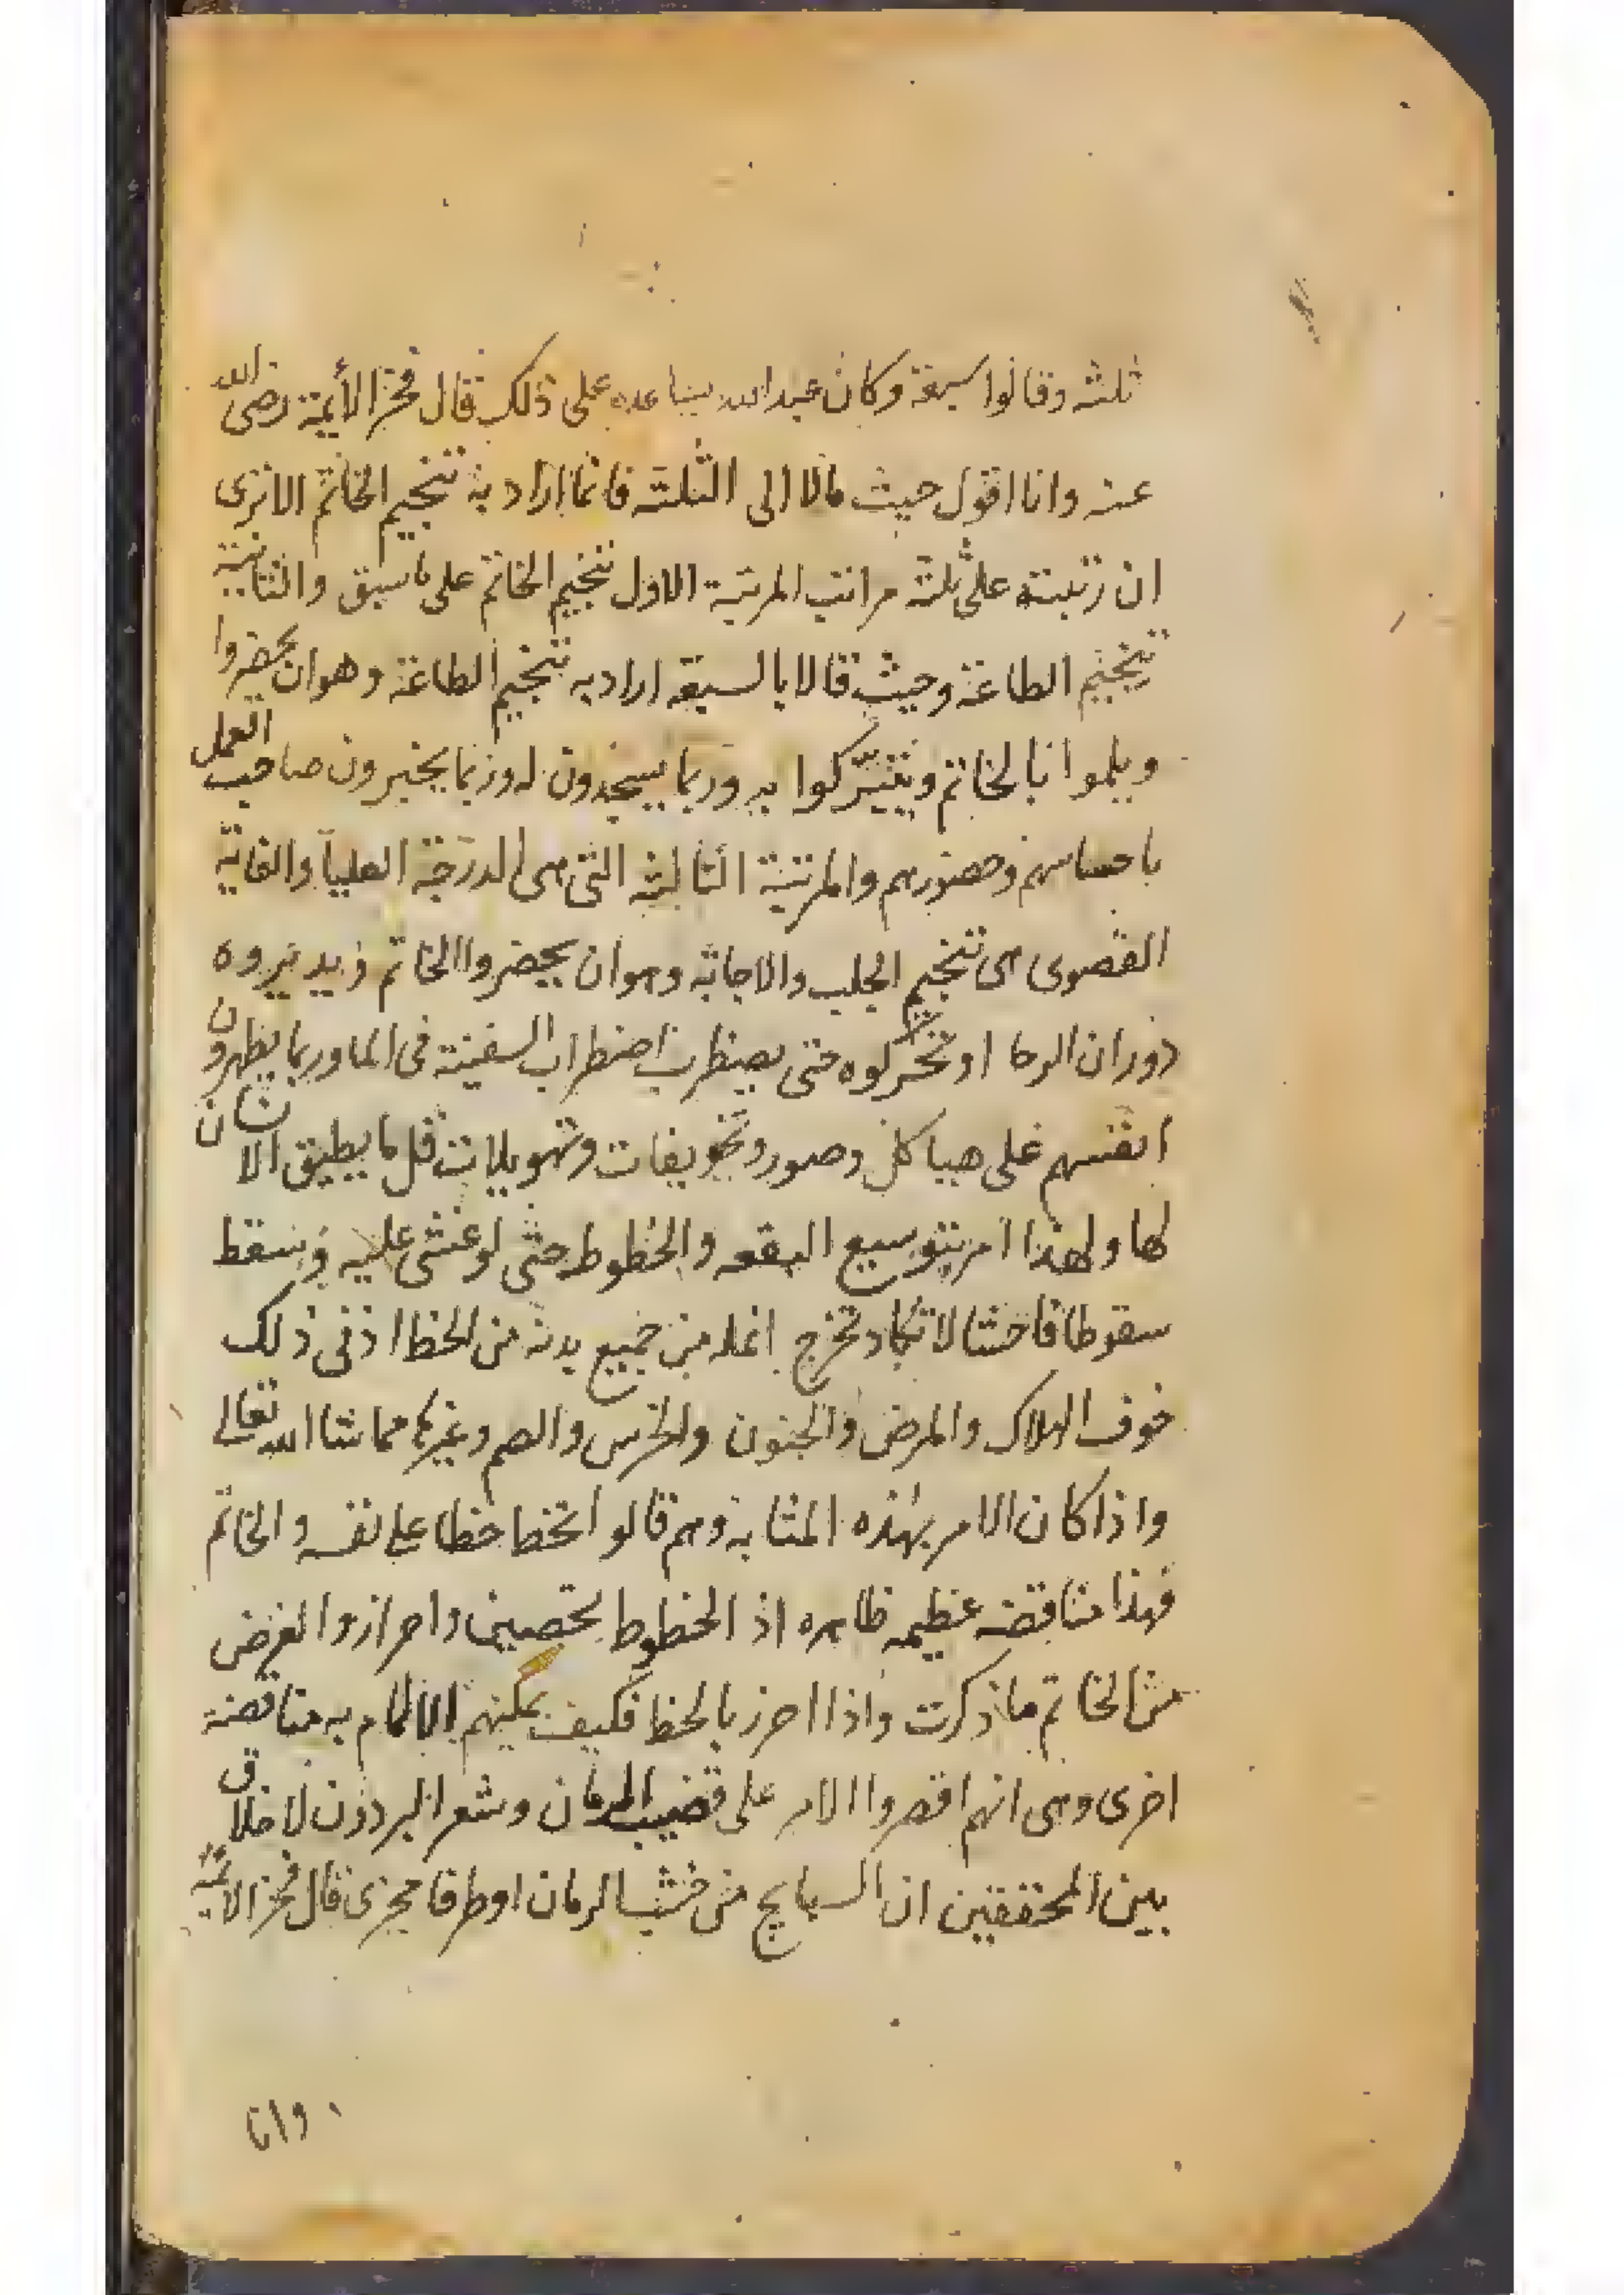 ثلثه وقالوا سبعة وكان عبد الله يساعده على ذلك قال فخر الأيمة رضى الله
عنه وانا اقول حيث مالا الى الثلثه فانما اراد به تنجيم الخاتم الا ترى
ان رتبته على ثلثه مراتب المرتبة الاول تنجيم الخاتم على ما سبق والثانية
تنجيم الطاعة وحيث قالا بالسبعة اراد به تنجيم الطاعة وهو ان يحضروا
ويلموا بالخاتم ويتبرّكوا به وربما يسجدون له وربما يخبرون صاحب العمل
باحساسهم وحضورهم والمرتبة الثالثه التى هى الدرجة العليا والغاية
القصوى هى تنجيم الجلب والاجابه وهو ان يحضروا الخاتم ويديروه
دوران الرحا او تحركوه حتى يضطرب اضطراب السفينة فى الما وربما يظهرون
انفسهم على هياكل وصور وتخويفات وتهويلات قل ما يطيق الانسان
لها ولهذا امر بتوسيع البقعه والخطوط حتى لو غشى عليه وسقط
سقوطا فاحشا لا تكاد تخرج انمله من جميع بدنه من الخط اذ فى ذلك
خوف الهلاك والمرض والجنون والخرس والصم وغيرها مما شا الله تعالى
واذا كان الامر بهذه المثابه وهم قالوا تخط خطا على نفسه والخاتم
فهذا مناقضه عظيمه ظاهره اذ الخطوط لتحصين واحراز والغرض
من الخاتم ما ذكرت واذا احرز بالخط فكيف يمكنهم الالمام به مناقضة
اخرى وهى انهم اقصروا الامر على قضيب الرمان وشعر البردون لا خلاق
بين المحققين ان من خشب الرمان او طرفا مجزى قال فخر الائمة
وانا